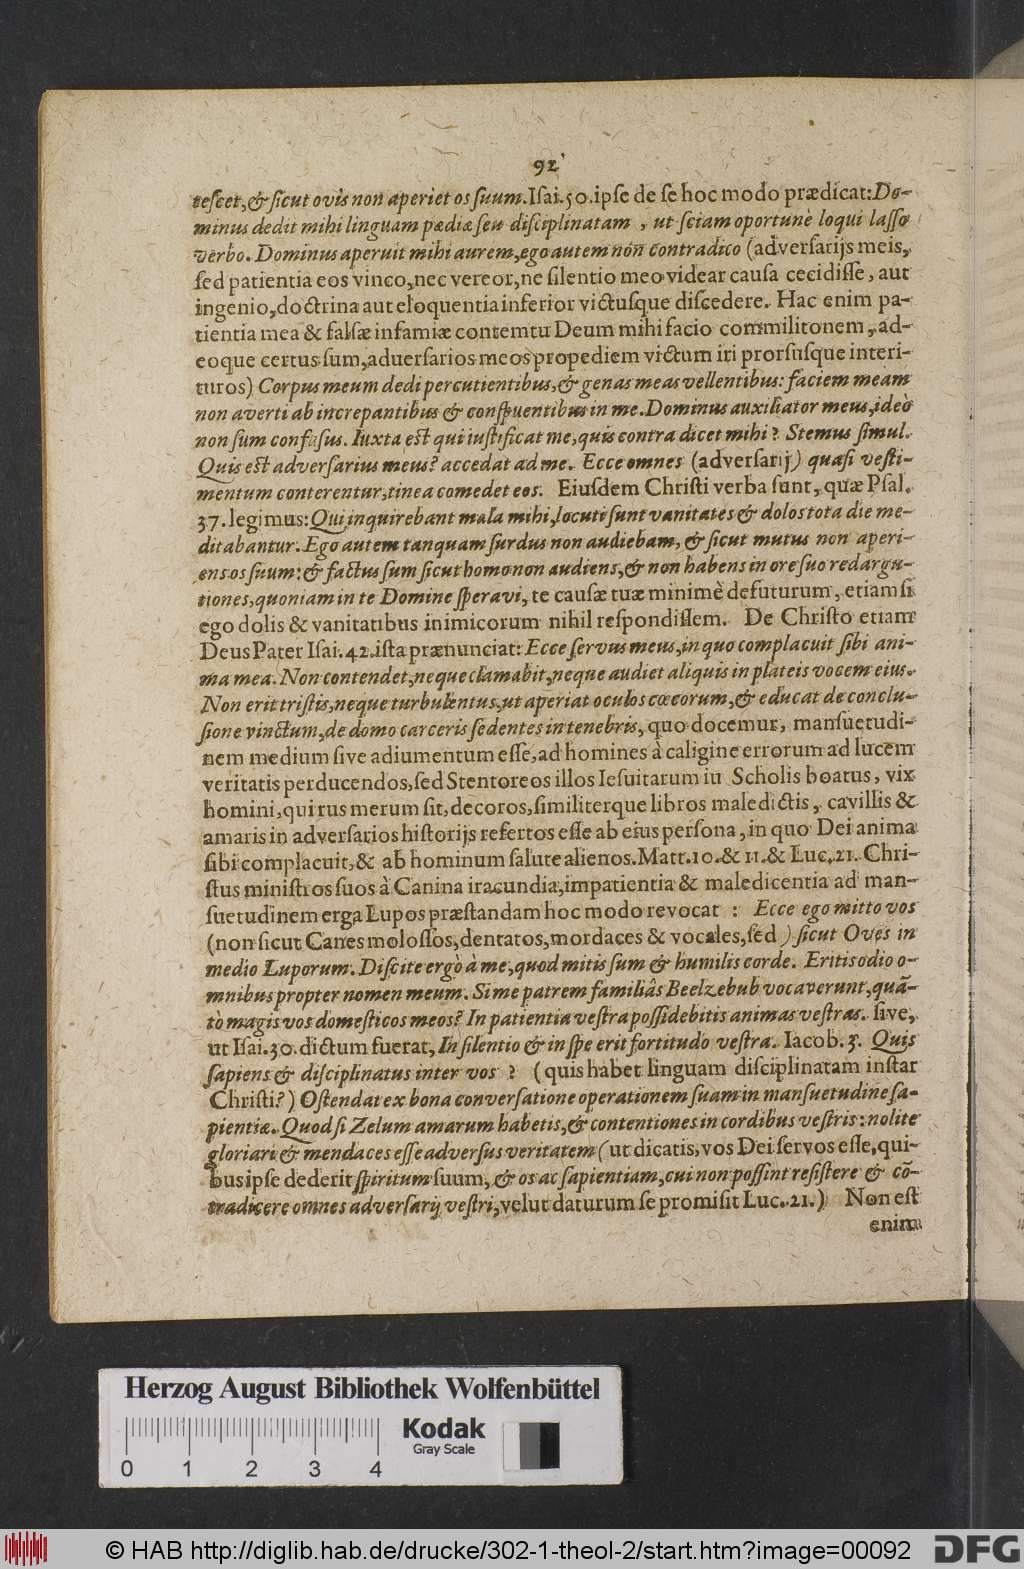 92
tescet, & sicut ovis non aperiet os suum. Isai. 50. ipse de se hoc modo prædicat: Do-
minus dedit mihi linguam pædiæ seu disciplinatam, ut sciam oportunè loqui lasso
verbo. Dominus aperuit mihi aurem, ego autem non contradico (adversarijs meis,
sed patientia eos vinco, nec vereor, ne silentio meo videar causa cecidisse, aut
ingenio, doctrina aut eloquentia inferior victusque discedere. Hac enim pa-
tientia mea & falsæ infamiæ contemtu Deum mihi facio commilitonem, ad-
eoque certus sum, adversarios meos propediem victum iri prorsusque interi-
turos) Corpus meum dedi percutientibus, & genas meas vellentibus: faciem meam
non averti ab increpantibus & conspuentibus in me. Dominus auxiliator meus, ideò
non sum confusus. Iuxta est qui iustificat me, quis contra dicet mihi? Stemus simul.
Quis est adversarius meus? accedat ad me. Ecce omnes (adversarij) quasi vesti-
mentum conterentur, tinea comedet eos. Eiusdem Christi verba sunt, quæ Psal.
37. legimus: Qui inquirebant mala mihi, locuti sunt vanitates & dolos tota die me-
ditabantur. Ego autem tanquam surdus non audiebam, & sicut mutus non aperi-
ens os suum: & factus sum sicut homo non audiens, & non habens in ore suo redargu-
tiones, quoniam in te Domine speravi, te causæ tuæ minimè defuturum, etiam si
ego dolis & vanitatibus inimicorum nihil respondissem. De Christo etiam
Deus Pater Isai. 42. ista prænunciat: Ecce servus meus, in quo complacuit sibi ani-
ma mea. Non contendet, neque clamabit, neque audiet aliquis in plateis vocem eius.
Non erit tristis, neque turbulentus, ut aperiat oculos cœcorum, & educat de conclu-
sione vinctum, de domo carceris sedentes in tenebris, quo docemur, mansuetudi-
nem medium sive adiumentum esse, ad homines à caligine errorum ad lucem
veritatis perducendos, sed Stentoreos illos Iesuitarum iu Scholis boatus, vix
homini, qui rus merum sit, decoros, similiterque libros maledictis, cavillis &
amaris in adversarios historijs refertos esse ab eius persona, in quo Dei anima
sibi complacuit, & ab hominum salute alienos. Matt. 10. & 11. & Luc. 21. Chri-
stus ministros suos à Canina iracundia, impatientia & maledicentia ad man-
suetudinem erga Lupos præstandam hoc modo revocat : Ecce ego mitto vos
(non sicut Canes molossos, dentatos, mordaces & vocales, sed) sicut Oves in
medio Luporum. Discite ergò à me, quod mitis sum & humilis corde. Eritis odio o-
mnibus propter nomen meum. Si me patrem familiâs Beelzebub vocaverunt, quā-
tò magis vos domesticos meos? In patientia vestra possidebitis animas vestras. sive,
ut Isai. 30. dictum fuerat, In silentio & in spe erit fortitudo vestra. Iacob. 3. Quis
sapiens & disciplinatus inter vos ? (quis habet linguam disciplinatam instar
Christi?) Ostendat ex bona conversatione operationem suam in mansuetudine sa-
pientiæ. Quod si Zelum amarum habetis, & contentiones in cordibus vestris: nolite
gloriari & mendaces esse adversus veritatem (ut dicatis, vos Dei servos esse, qui-
bus ipse dederit spiritum suum, & os ac sapientiam, cui non possint resistere & cō-
tradicere omnes adversarij vestri, velut daturum se promisit Luc. 21.) Non est
enim
Herzog August Bibliothek Wolfenbüttel
Kodak
Gray Scale
0 1 2 3 4
© HAB http://diglib.hab.de/drucke/302-1-theol-2/start.htm?image=00092
DFG